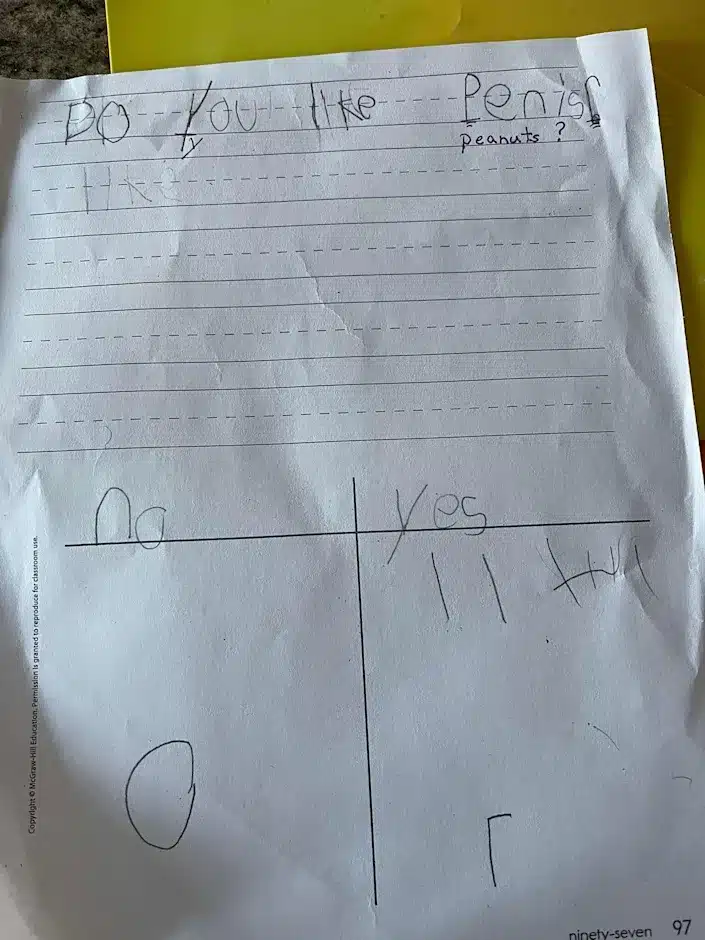 Do you like Penis
Ty
peanuts ?
like
no
yes
0
Copyright © McGraw-Hill Education. Permission is granted to reproduce for classroom use.
ninety-seven 97